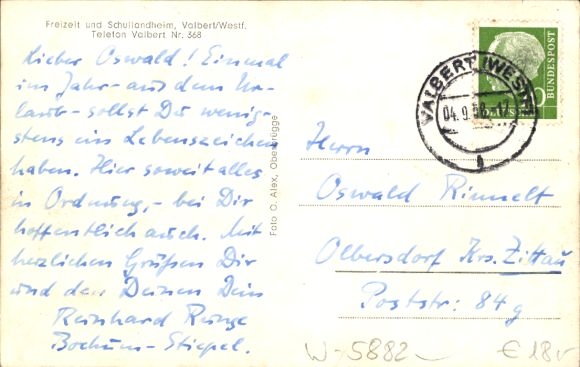 Freizeit und Schullandheim, Valbert/Westf.
Telefon Valbert Nr. 368
Lieber Oswald! Einmal
im Jahr - aus dem Ur-
laub - sollst Du wenig-
stens ein Lebenszeichen
haben. Hier soweit alles
in Ordnung, - bei Dir
hoffentlich auch. Mit
herzlichen Grüßen Dir
und den Deinen Dein
Reinhard Runge
Bochum-Stiepel.
Foto O. Alex, Oberbrügge
DEUTSCHE BUNDESPOST
VALBERT (WESTF)
04.9.58-17
a
Herrn
Oswald Rinnelt
Olbersdorf Krs. Zittau
Poststr: 84g
W-5882
€ 18v